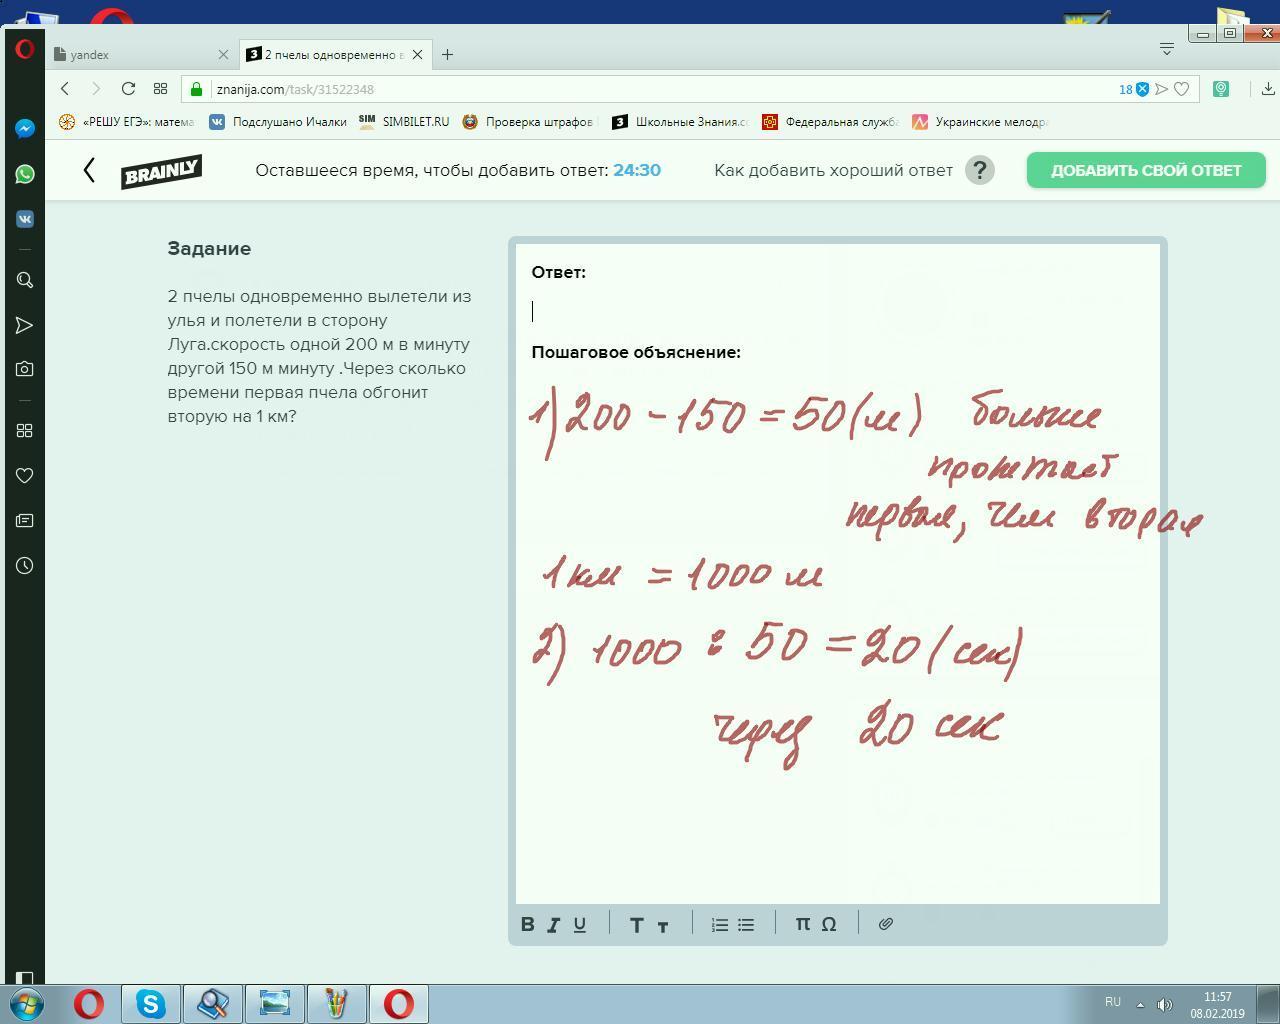 yandex
2 пчелы одновременно в
znanija.com/task/31522348
18
«РЕШУ ЕГЭ»: матема
Подслушано Ичалки
SIM
SIMBILET.RU
Проверка штрафов
Школьные Знания.co
Федеральная служба
Украинские мелодра
BRAINLY
Оставшееся время, чтобы добавить ответ: 24:30
Как добавить хороший ответ
?
ДОБАВИТЬ СВОЙ ОТВЕТ
Задание
2 пчелы одновременно вылетели из
улья и полетели в сторону
Луга.скорость одной 200 м в минуту
другой 150 м минуту .Через сколько
времени первая пчела обгонит
вторую на 1 км?
Ответ:
Пошаговое объяснение:
1) 200 - 150 = 50 (м) больше
первая, чем вторая
1 км = 1000 м
2) 1000 : 50 = 20 (сек)
через 20 сек
B I U T т π Ω
RU
11:57
08.02.2019